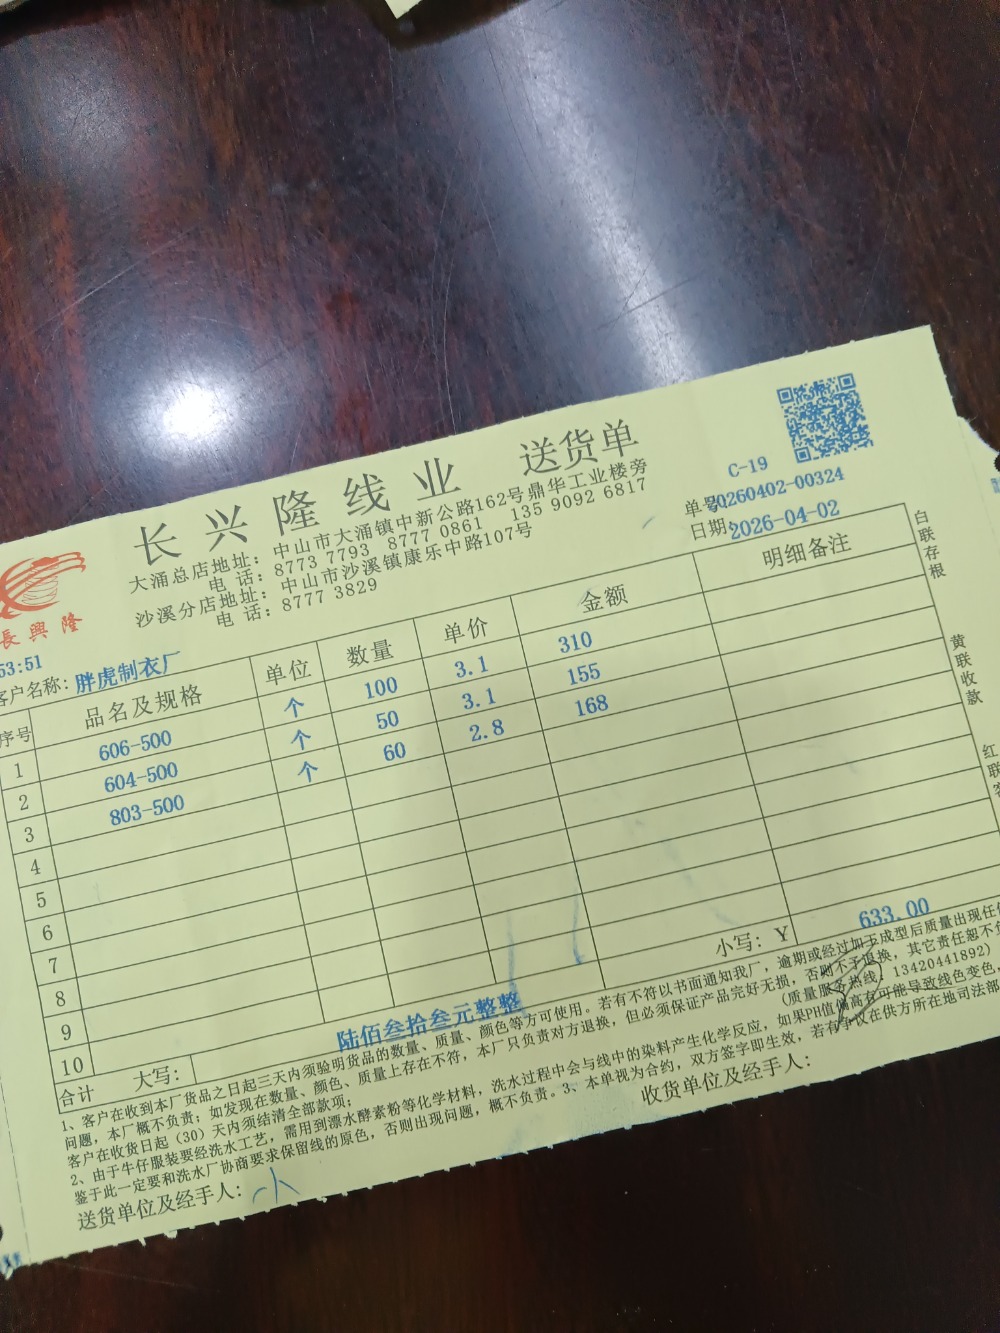 长兴隆线业 送货单
C-19
大涌总店地址：中山市大涌镇中新公路162号鼎华工业楼旁
电 话：8773 7793 8777 0861 135 9092 6817
沙溪分店地址：中山市沙溪镇康乐中路107号
电 话：8777 3829
单号 20260402-00324
日期：2026-04-02
長興隆
53:51
客户名称：胖虎制衣厂
序号 品名及规格 单位 数量 单价 金额 明细备注
1 606-500 个 100 3.1 310
2 604-500 个 50 3.1 155
3 803-500 个 60 2.8 168
4
5
6
7
8
9
10
合计 大写：陆佰叁拾叁元整整 小写：Y 633.00
1、客户在收到本厂货品之日起三天内须验明货品的数量、质量、颜色等方可使用。若有不符以书面通知我厂，逾期或经过加工成型后质量出现任
问题，本厂概不负责；如发现在数量、颜色、质量上存在不符，本厂只负责对方退换，但必须保证产品完好无损，否则不予退换，其它责任恕不
客户在收货日起（30）天内须结清全部款项；
（质量服务热线：13420441892）
2、由于牛仔服装要经洗水工艺，需用到漂水酵素粉等化学材料，洗水过程中会与线中的染料产生化学反应，如果PH值偏高有可能导致线色变色，
鉴于此一定要和洗水厂协商要求保留线的原色，否则出现问题，概不负责。3、本单视为合约，双方签字即生效，若有争议在供方所在地司法部
送货单位及经手人：
收货单位及经手人：
白联存根
黄联收款
红联客